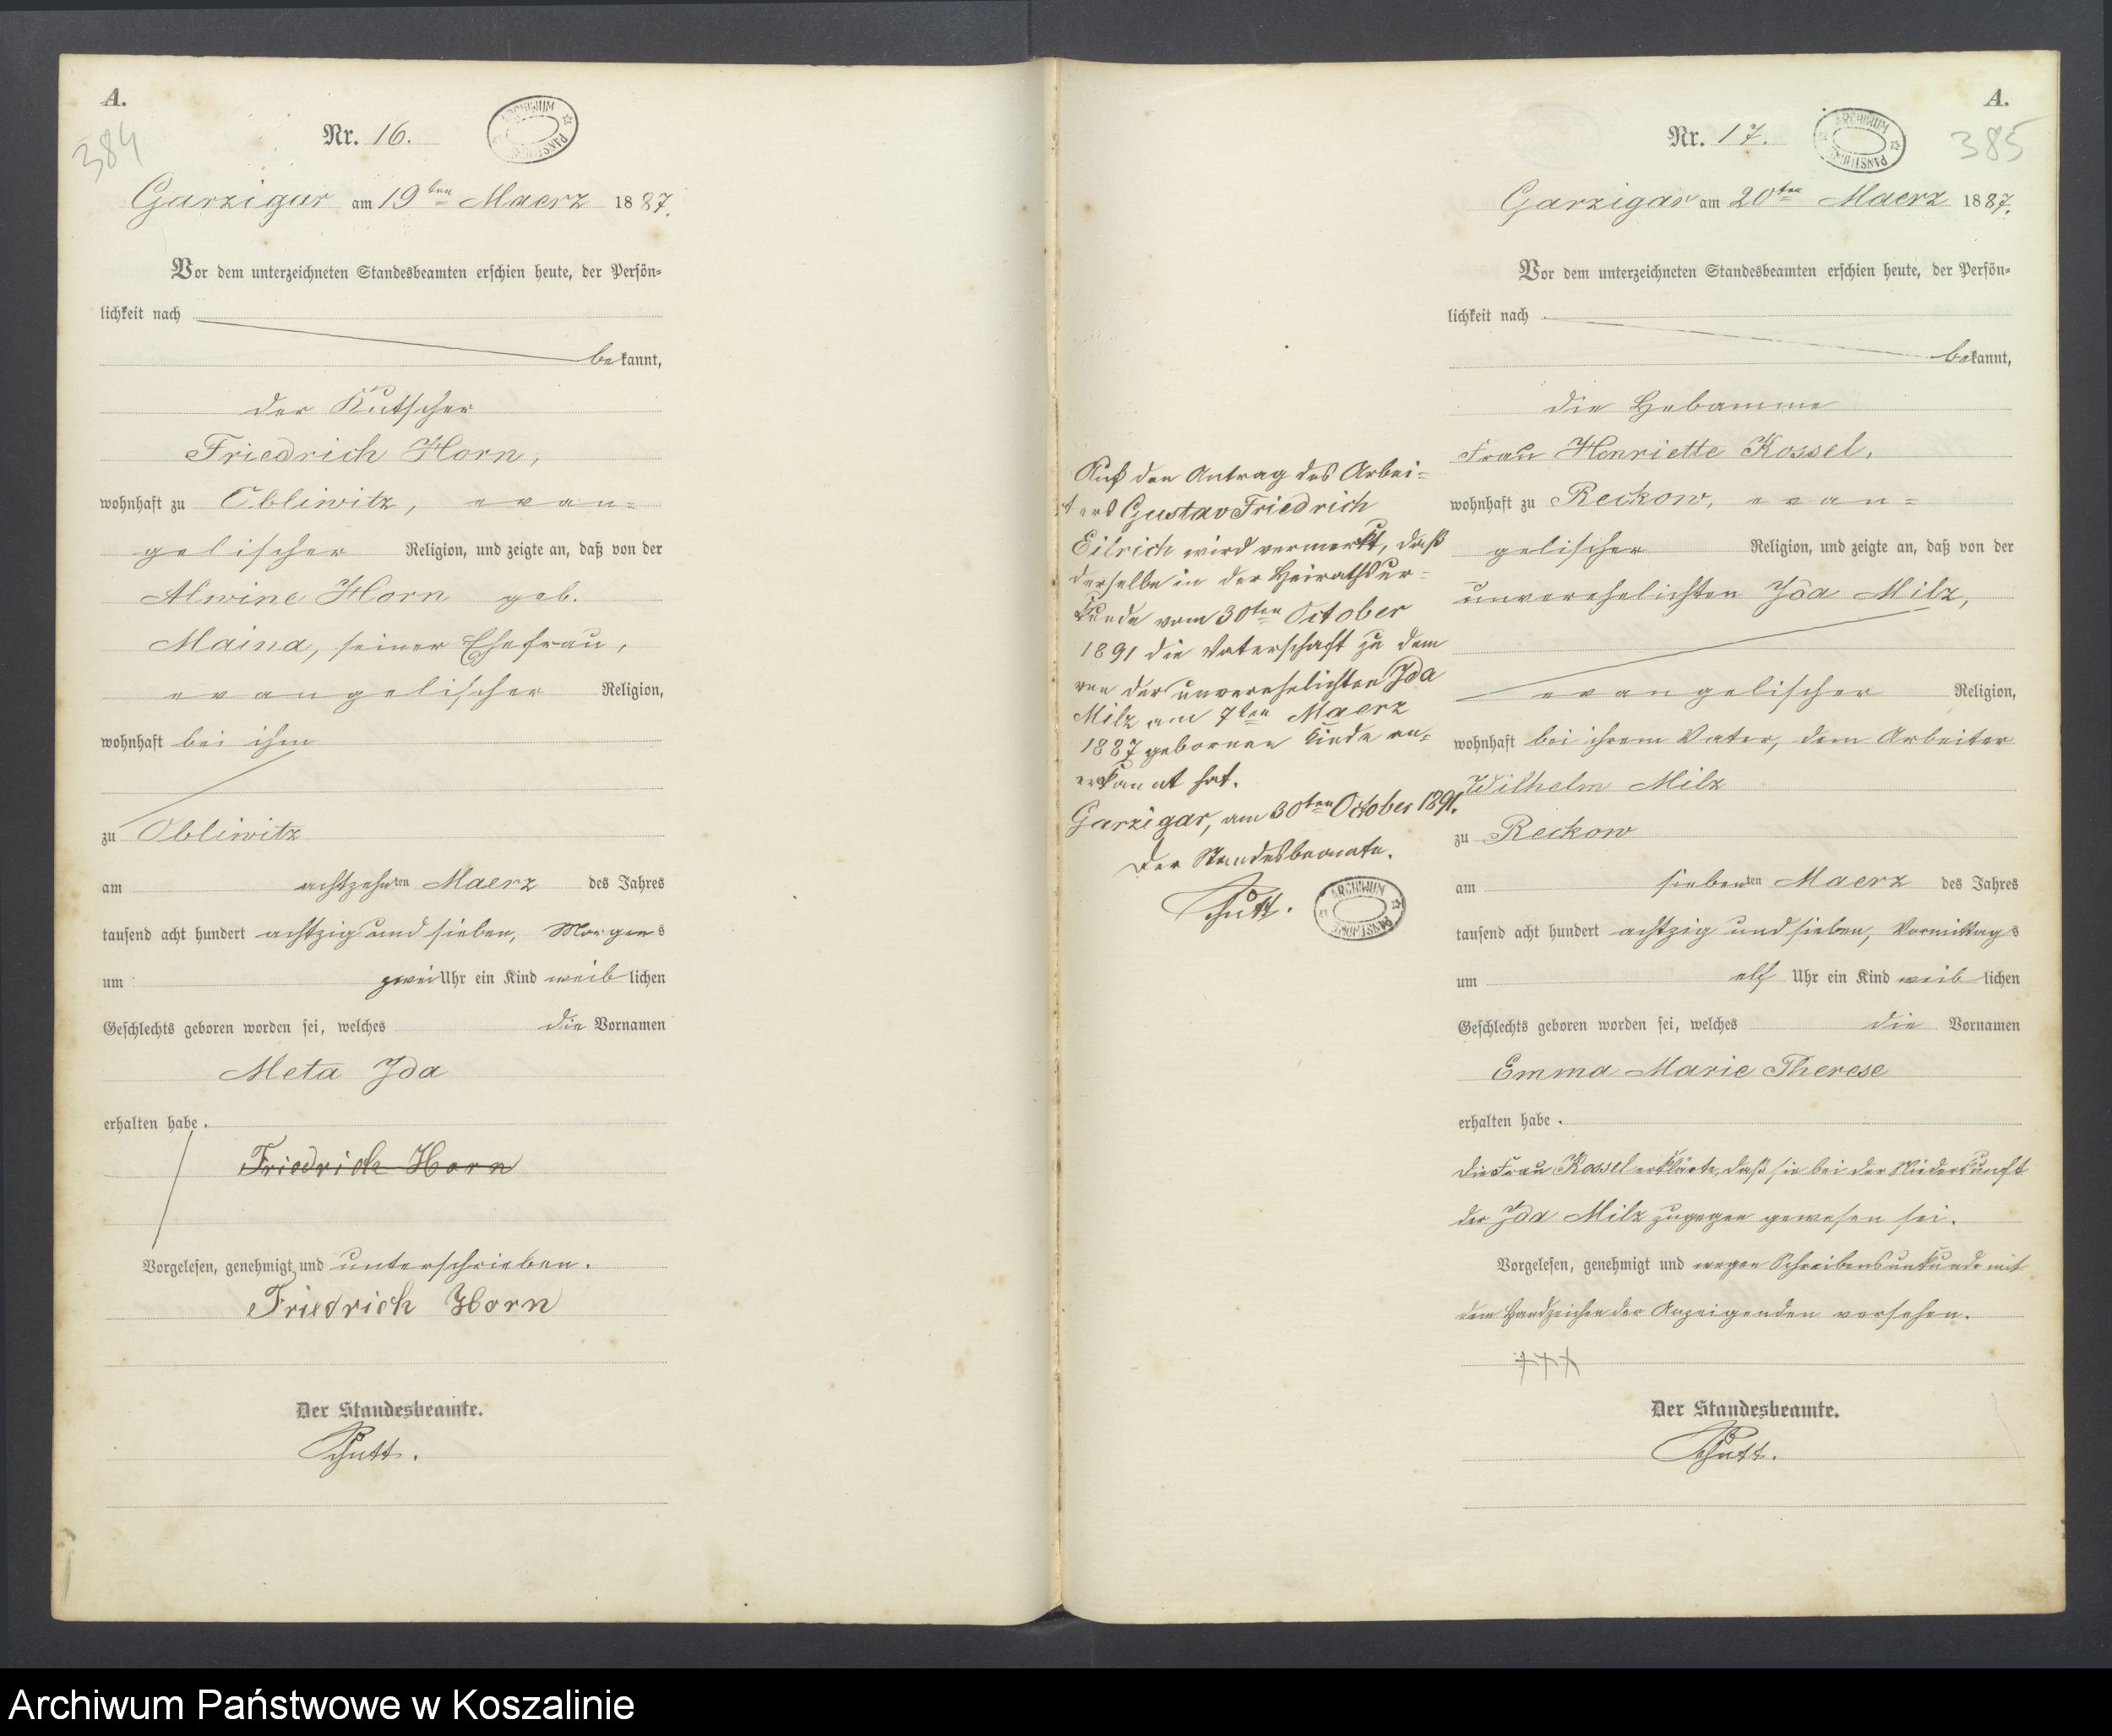 A.
384
Nr. 16.
ARCHIWUM PAŃSTWOWE
Garzigar am 19ten Maerz 1887.
Vor dem unterzeichneten Standesbeamten erschien heute, der Persön=
lichkeit nach
bekannt,
der Kutscher
Friedrich Horn,
wohnhaft zu Obliwitz, evan=
gelischer Religion, und zeigte an, daß von der
Alwine Horn geb.
Maina, seiner Ehefrau,
evangelischer Religion,
wohnhaft bei ihm
zu Obliwitz
am achtzehnten Maerz des Jahres
tausend acht hundert achtzig und sieben, Morgens
um zwei Uhr ein Kind weiblichen
Geschlechts geboren worden sei, welches die Vornamen
Meta Ida
erhalten habe.
Friedrich Horn
Vorgelesen, genehmigt und unterschrieben.
Friedrich Horn
Der Standesbeamte.
A.
385
Nr. 17.
ARCHIWUM PAŃSTWOWE
Garzigar am 20ten Maerz 1887.
Vor dem unterzeichneten Standesbeamten erschien heute, der Persön=
lichkeit nach
bekannt,
die Hebamme
Frau Henriette Kossel,
wohnhaft zu Reckow, evan=
gelischer Religion, und zeigte an, daß von der
unverehelichten Ida Milz,
evangelischer Religion,
wohnhaft bei ihrem Vater, dem Arbeiter
Wilhelm Milz
zu Reckow
am siebenten Maerz des Jahres
tausend acht hundert achtzig und sieben, Vormittags
um elf Uhr ein Kind weiblichen
Geschlechts geboren worden sei, welches die Vornamen
Emma Marie Therese
erhalten habe.
Die Frau Kossel erklärte, daß sie bei der Niederkunft
der Ida Milz zugegen gewesen sei.
Vorgelesen, genehmigt und wegen Schreibensunkunde mit
dem Handzeichen der Anzeigenden versehen.
+++
Der Standesbeamte.
Auf den Antrag des Arbei=
ters Gustav Friedrich
Eilrich wird vermerkt, daß
derselbe in der Heirathsur=
kunde vom 30ten October
1891 die Vaterschaft zu dem
von der unverehelichten Ida
Milz am 7ten Maerz
1887 gebornen Kinde an=
erkannt hat.
Garzigar, am 30ten October 1891.
Der Standesbeamte.
ARCHIWUM PAŃSTWOWE
Archiwum Państwowe w Koszalinie